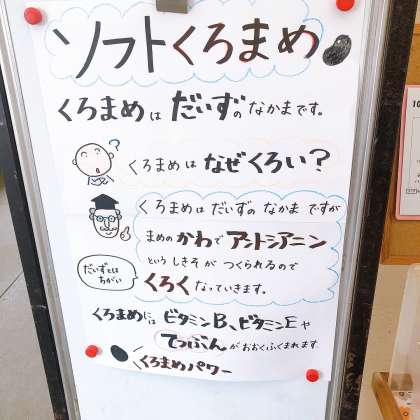 ソフトくろまめ
くろまめは だいずの なかまです。
?
くろまめは なぜくろい?
くろまめは だいずの なかま ですが
まめの かわで アントシアニン
という しきそ が つくられるので
くろく なっていきます。
だいずとは
ちがい
くろまめには ビタミンB、ビタミンEや
てつぶんが おおくふくまれます
くろまめパワー
10